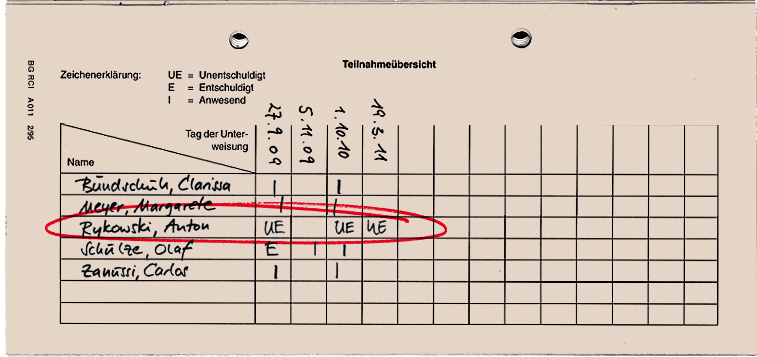 Teilnahmeübersicht
Zeichenerklärung: UE = Unentschuldigt
E = Entschuldigt
I = Anwesend
BG RCI A011 2/95
Tag der Unter-
weisung
27.9.09 5.11.09 1.10.10 19.3.11
Name
Bundschuh, Clarissa I I
Meyer, Margarete I I
Rykowski, Anton UE UE UE
Schulze, Olaf E I I
Zanussi, Carlos I I